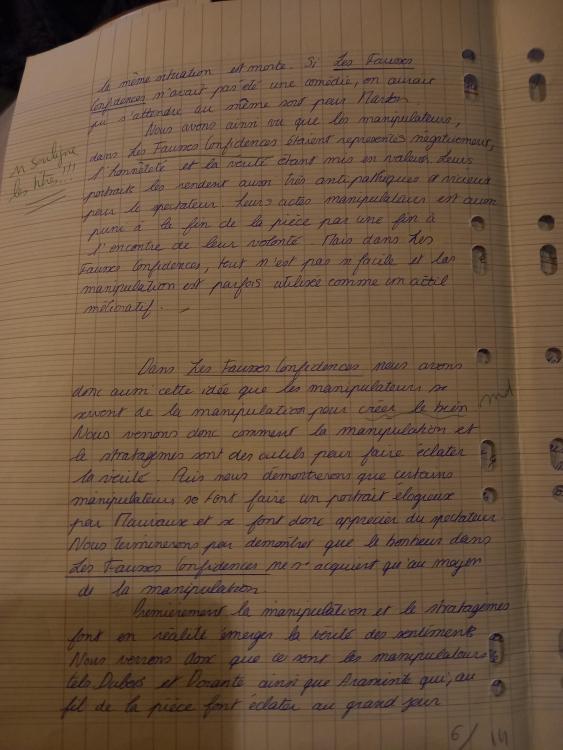 la même situation est morte. Si Les Fausses
Confidences n'avait pas été une comédie, on aurait
pu s'attendre au même sort pour Marton.
Nous avons ainsi vu que les manipulateurs,
dans Les Fausses Confidences étaient représentés négativement,
l'honnêteté et la vérité étant mis en valeur. Leurs
portraits les rendent aussi très antipathiques et vicieux
pour le spectateur. Leurs actes manipulateurs est aussi
puni à la fin de la pièce par une fin à
l'encontre de leur volonté. Mais dans Les
Fausses Confidences, tout n'est pas si facile et la
manipulation est parfois utilisée comme un outil
mélioratif.
on souligne
les titres !!!
Dans Les Fausses Confidences nous avons
donc aussi cette idée que les manipulateurs se
servent de la manipulation pour créer le bien
md
Nous verrons donc comment la manipulation et
le stratagèmes sont des outils pour faire éclater
la vérité. Puis nous démontrerons que certains
manipulateurs se font faire un portrait élogieux
par Marivaux et se font donc apprécier du spectateur
Nous terminerons par démontrer que le bonheur dans
Les Fausses Confidences ne s'acquiert qu'au moyen
de la manipulation.
Premièrement la manipulation et le stratagèmes
font en réalité émerger la vérité des sentiments
Nous verrons donc que ce sont les manipulateurs
tels Dubois et Dorante ainsi que Araminte qui, au
fil de la pièce font éclater au grand jour
6/14